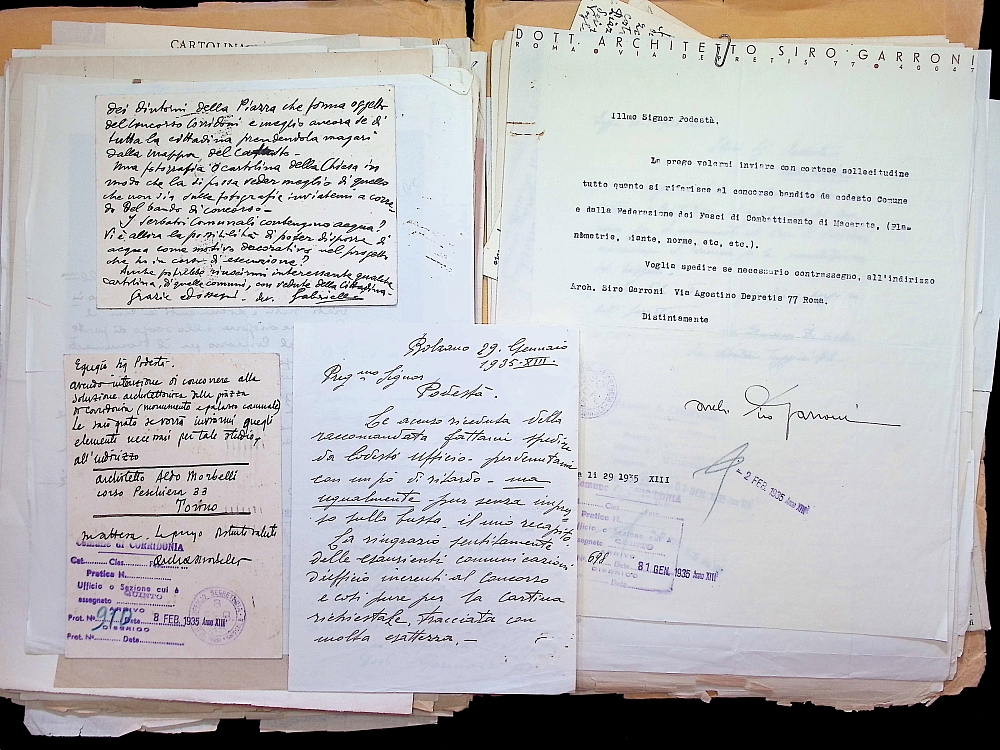 CARTOLINA
dei dintorni della Piazza che forma oggetto
del Concorso Corridoni e meglio ancora se di
tutta la cittadina prendendola magari
dalla mappa del Catasto -
Una fotografia o cartolina della Chiesa in
modo che la si possa veder meglio di quello
che non sia dalla fotografia inviatami a corre-
do del bando di concorso -
I serbatoi Comunali contengono acqua?
Vi è allora la possibilità di poter disporre di
acqua come motivo decorativo nel progetto
che ho in corso di esecuzione?
Anche potrebbe riuscirmi interessante qualche
cartolina, di quelle comuni, con vedute della cittadina.
Grazie ed ossequi.
Egregio Sig Podestà.
avendo intenzione di concorrere alla
soluzione architettonica della piazza
di Corridonia (monumento e palazzo comunale)
Le sarò grato se vorrà inviarmi quegli
elementi necessari per tale studio,
all'indirizzo
architetto Aldo Morbelli
corso Peschiera 33
Torino
Comune di CORRIDONIA
Cat. Clas.
Pratica N.
Ufficio o Sezione cui è
QUINTO
assegnato
ARRIVO
Prot. N. 970 Data 8 FEB. 1935 Anno XIII
Prot. N. Data
Bolzano 29. Gennaio
1935-XIII-
Preg.mo Signor
Podestà.
Le accuso ricevuta della
raccomandata fattami spedire
da codesto Ufficio - pervenutami
con un po' di ritardo - ma
ugualmente - pur senza impre-
so sulla busta il mio recapito.
La ringrazio sentitamente
delle esaurienti comunicazioni
d'ufficio inerenti al Concorso
e così pure per la cartina
richiestale, tracciata con
molta esattezza. -
DOTT. ARCHITETTO SIRO GARRONI
ROMA VIA DEPRETIS 77 40047
Illmo Signor Podestà,
La prego volermi inviare con cortese sollecitudine
tutto quanto si riferisce al concorso bandito da codesto Comune
e dalla Federazione dei Fasci di Combattimento di Macerata, (Pla-
nimetrie, piante, norme, etc, etc.).
Voglia spedire se necessario contrassegno, all'indirizzo
Arch. Siro Garroni Via Agostino Depretis 77 Roma.
Distintamente
Siro Garroni
li 29 1935 XIII
- 2 FEB. 1935 Anno XIII
Pratica N.
ufficio o Sezione cui
QUINTO
31 GEN. 1935 Anno XIII